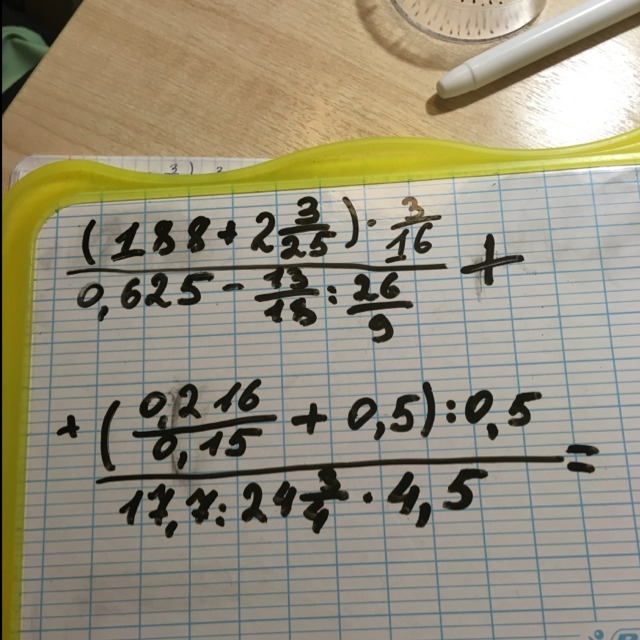 (188 + 2 3/25) · 3/16 +
0,625 - 13/18 : 26/9
+ (0,216/0,15 + 0,5) : 0,5 =
17,7 : 24 3/4 · 4,5